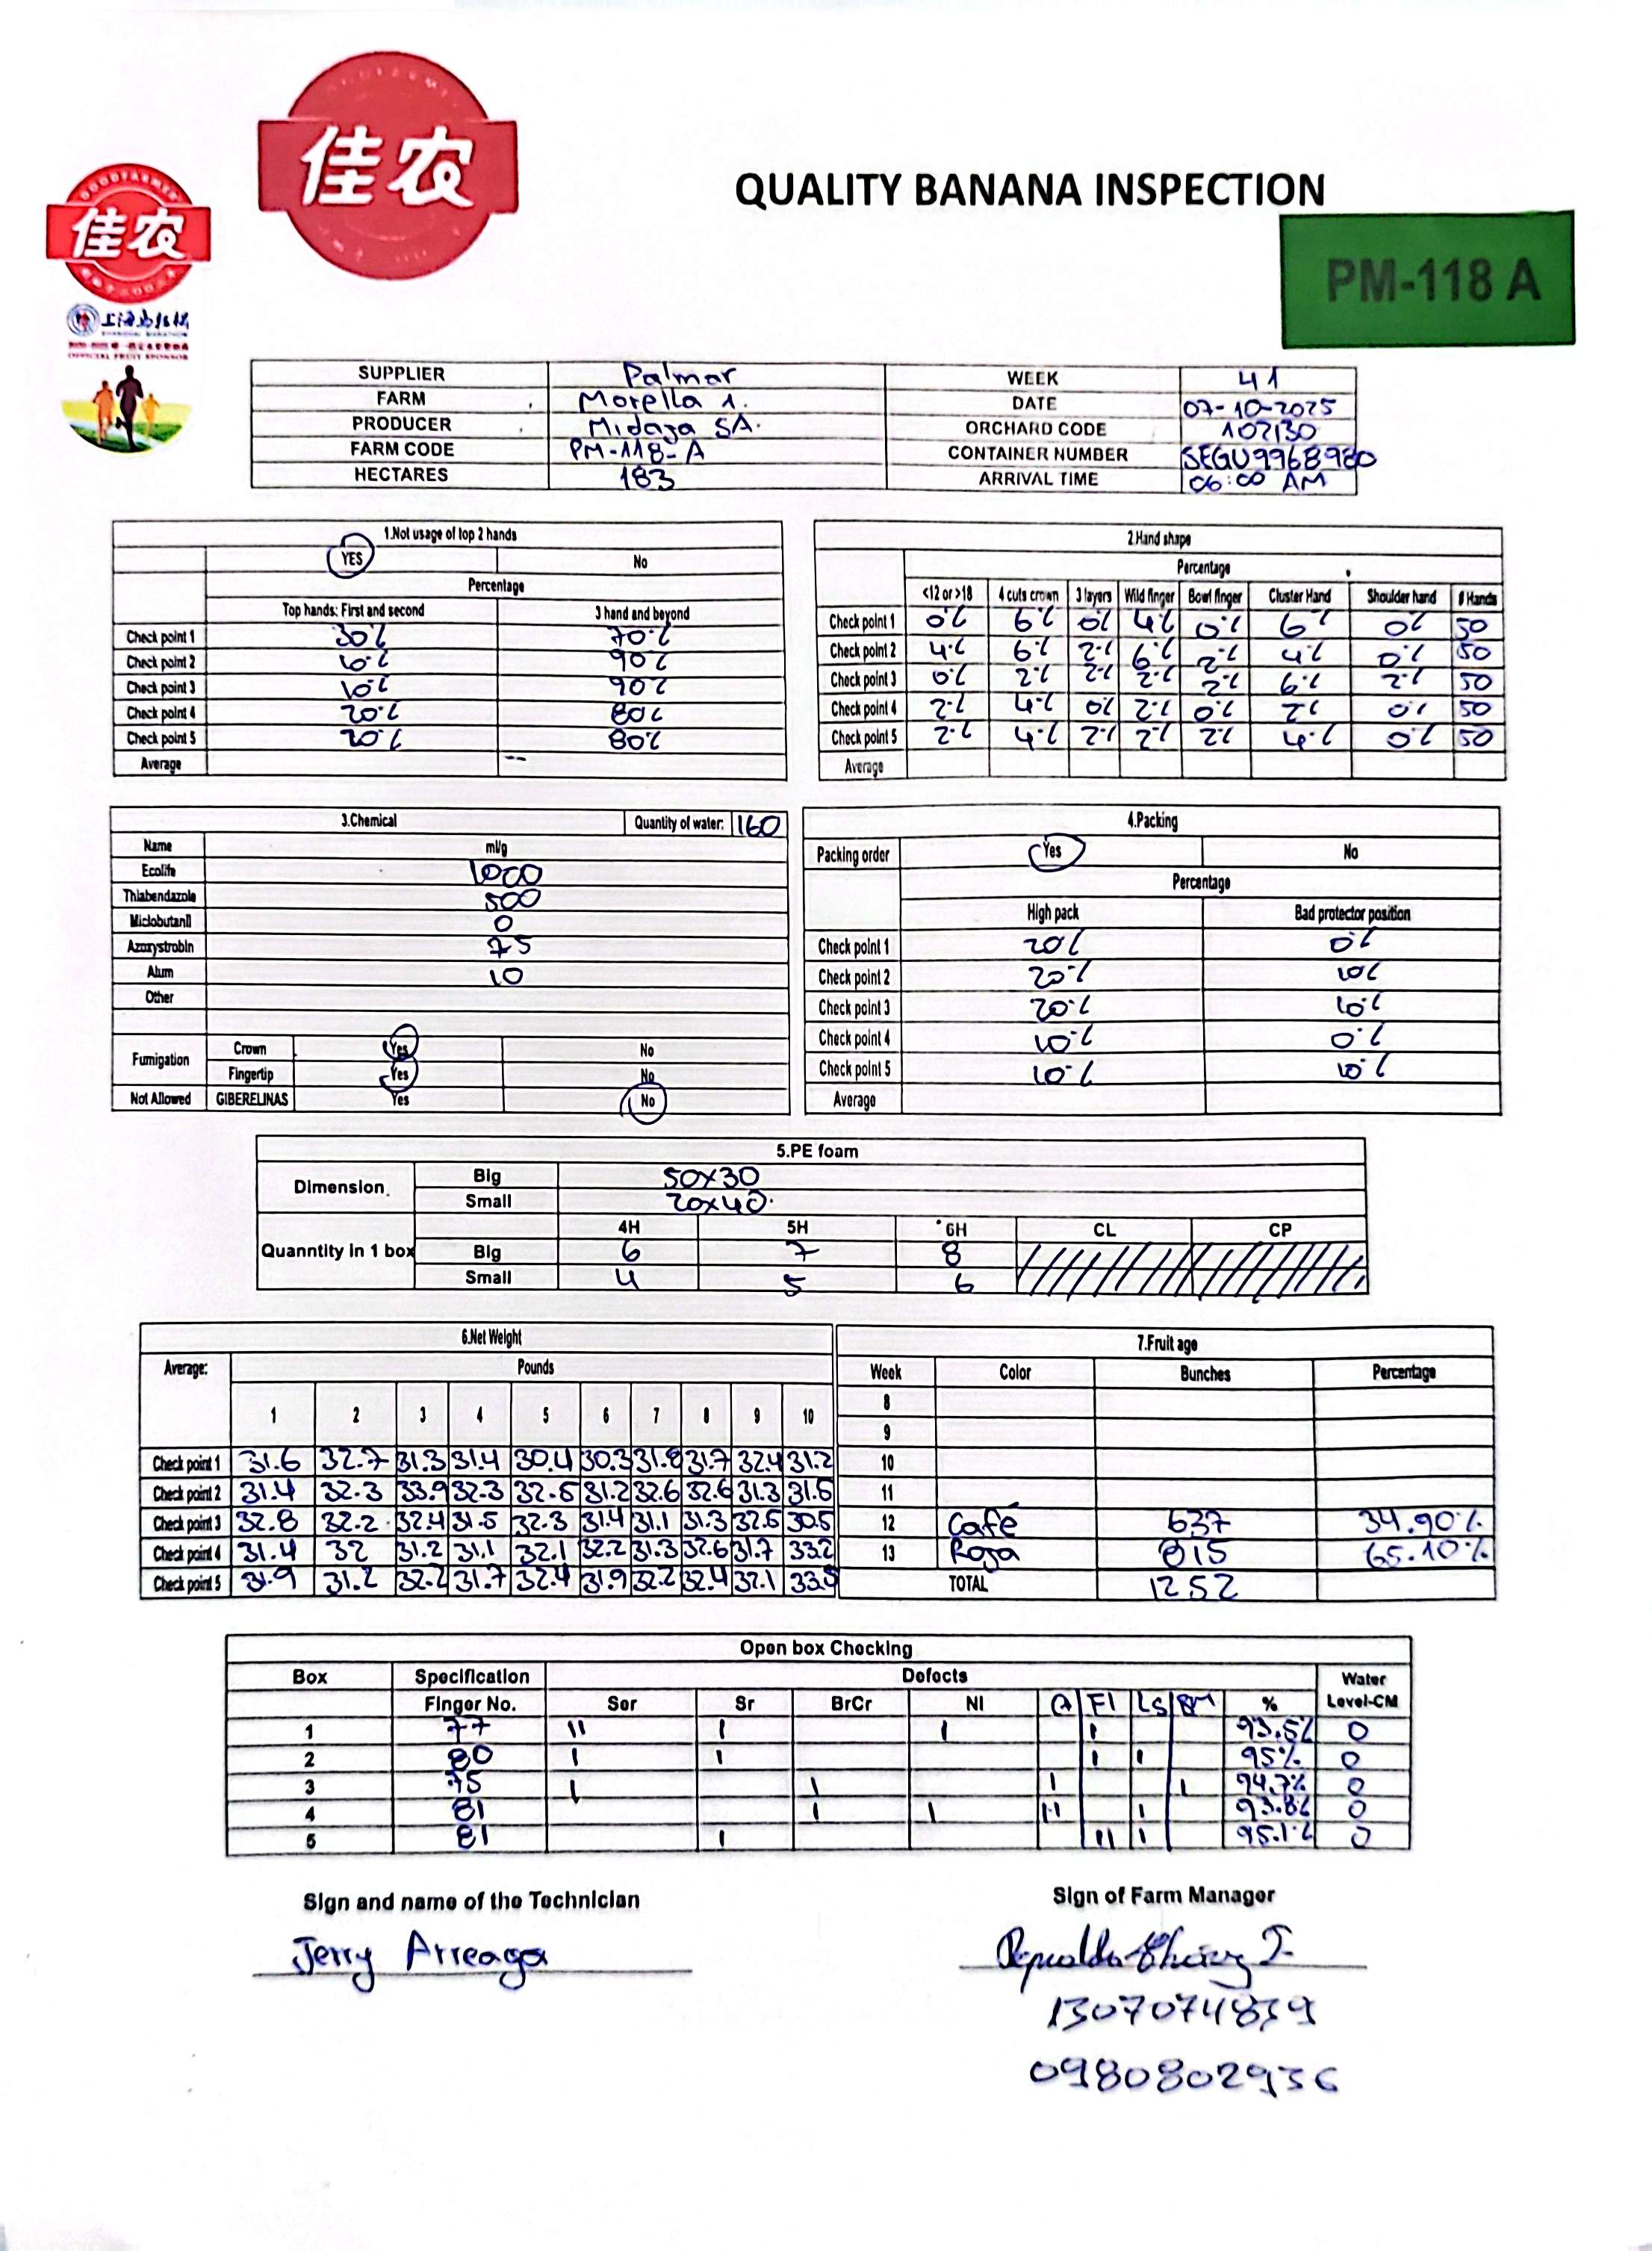 佳农
GOODFARMER
佳农
QUALITY BANANA INSPECTION
PM-118 A
OFFICIAL FRUIT SPONSOR
SUPPLIER Palmar WEEK 41
FARM Morella 1. DATE 07-10-2025
PRODUCER Midaja SA. ORCHARD CODE 107130
FARM CODE PM-118-A CONTAINER NUMBER SEGU9968980
HECTARES 183 ARRIVAL TIME 06:00 AM
1.Not usage of top 2 hands
YES No
Percentage
Top hands: First and second 3 hand and beyond
Check point 1 30% 70%
Check point 2 10% 90%
Check point 3 10% 90%
Check point 4 20% 80%
Check point 5 20% 80%
Average --
2.Hand shape
Percentage
<12 or >18 4 cuts crown 3 layers Wild finger Bowl finger Cluster Hand Shoulder hand # Hands
Check point 1 0% 6% 0% 4% 0% 6% 0% 50
Check point 2 4% 6% 2% 6% 2% 4% 0% 50
Check point 3 0% 2% 2% 2% 2% 6% 2% 50
Check point 4 2% 4% 0% 2% 0% 2% 0% 50
Check point 5 2% 4% 2% 2% 2% 4% 0% 50
Average
3.Chemical Quantity of water: 160
Name ml/g
Ecolife 1000
Thiabendazole 500
Miclobutanil 0
Azoxystrobin 75
Alum 10
Other
Fumigation Crown Yes No
Fingertip Yes No
Not Allowed GIBERELINAS Yes No
4.Packing
Packing order Yes No
Percentage
High pack Bad protector position
Check point 1 20% 0%
Check point 2 20% 10%
Check point 3 20% 10%
Check point 4 10% 0%
Check point 5 10% 10%
Average
5.PE foam
Dimension. Big 50x30
Small 20x40.
4H 5H 6H CL CP
Quanntity in 1 box Big 6 7 8
Small 4 5 6
6.Net Weight
Average: Pounds
1 2 3 4 5 6 7 8 9 10
Check point 1 31.6 32.7 31.3 31.4 30.4 30.3 31.8 31.7 32.4 31.2
Check point 2 31.4 32.3 33.9 32.3 32.5 31.2 32.6 32.6 31.3 31.5
Check point 3 32.8 32.2 32.4 31.5 32.3 31.4 31.1 31.3 32.5 30.5
Check point 4 31.4 32 31.2 31.1 32.1 32.2 31.3 32.6 31.7 33.2
Check point 5 31.9 31.2 32.2 31.7 32.4 31.9 32.2 32.4 32.1 33.5
7.Fruit age
Week Color Bunches Percentage
8
9
10
11
12 Café 637 34.90%
13 Roja 815 65.10%
TOTAL 1252
Open box Checking
Box Specification Defects Water
Finger No. Ser Sr BrCr NI A FI LS BM % Level-CM
1 77 11 1 1 1 93.5% 0
2 80 1 1 1 1 95% 0
3 75 1 1 1 1 94.7% 0
4 81 1 1 11 1 93.8% 0
5 81 1 11 1 95.1% 0
Sign and name of the Technician Sign of Farm Manager
Jerry Arreaga
1307074839
0980802936